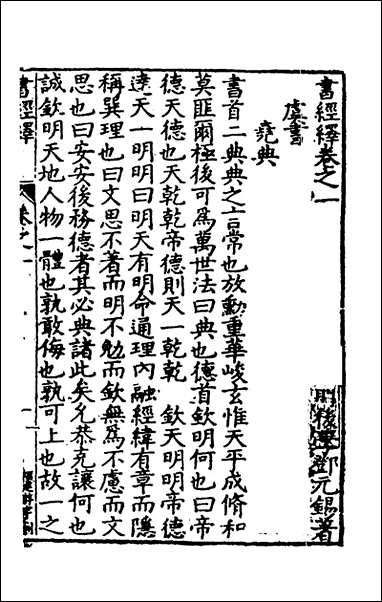 書經繹卷之一
明後學鄧元錫著
虞書
堯典
書首二典典之言常也放勳重華峻玄惟天平成脩和
莫匪爾極後可為萬世法曰典也德首欽明何也曰帝
德天德也天乾乾帝德則天一乾乾 欽天明明帝德
達天一明明曰明天有明命通理內融經緯有章而隱
稱巽理也曰文思不著而明不勉而欽無為不慮而文
思也曰安安後務德者其必典諸此矣允恭克讓何也
誠欽明天地人物一體也孰敢侮也孰可上也故一之
書經繹
卷之一